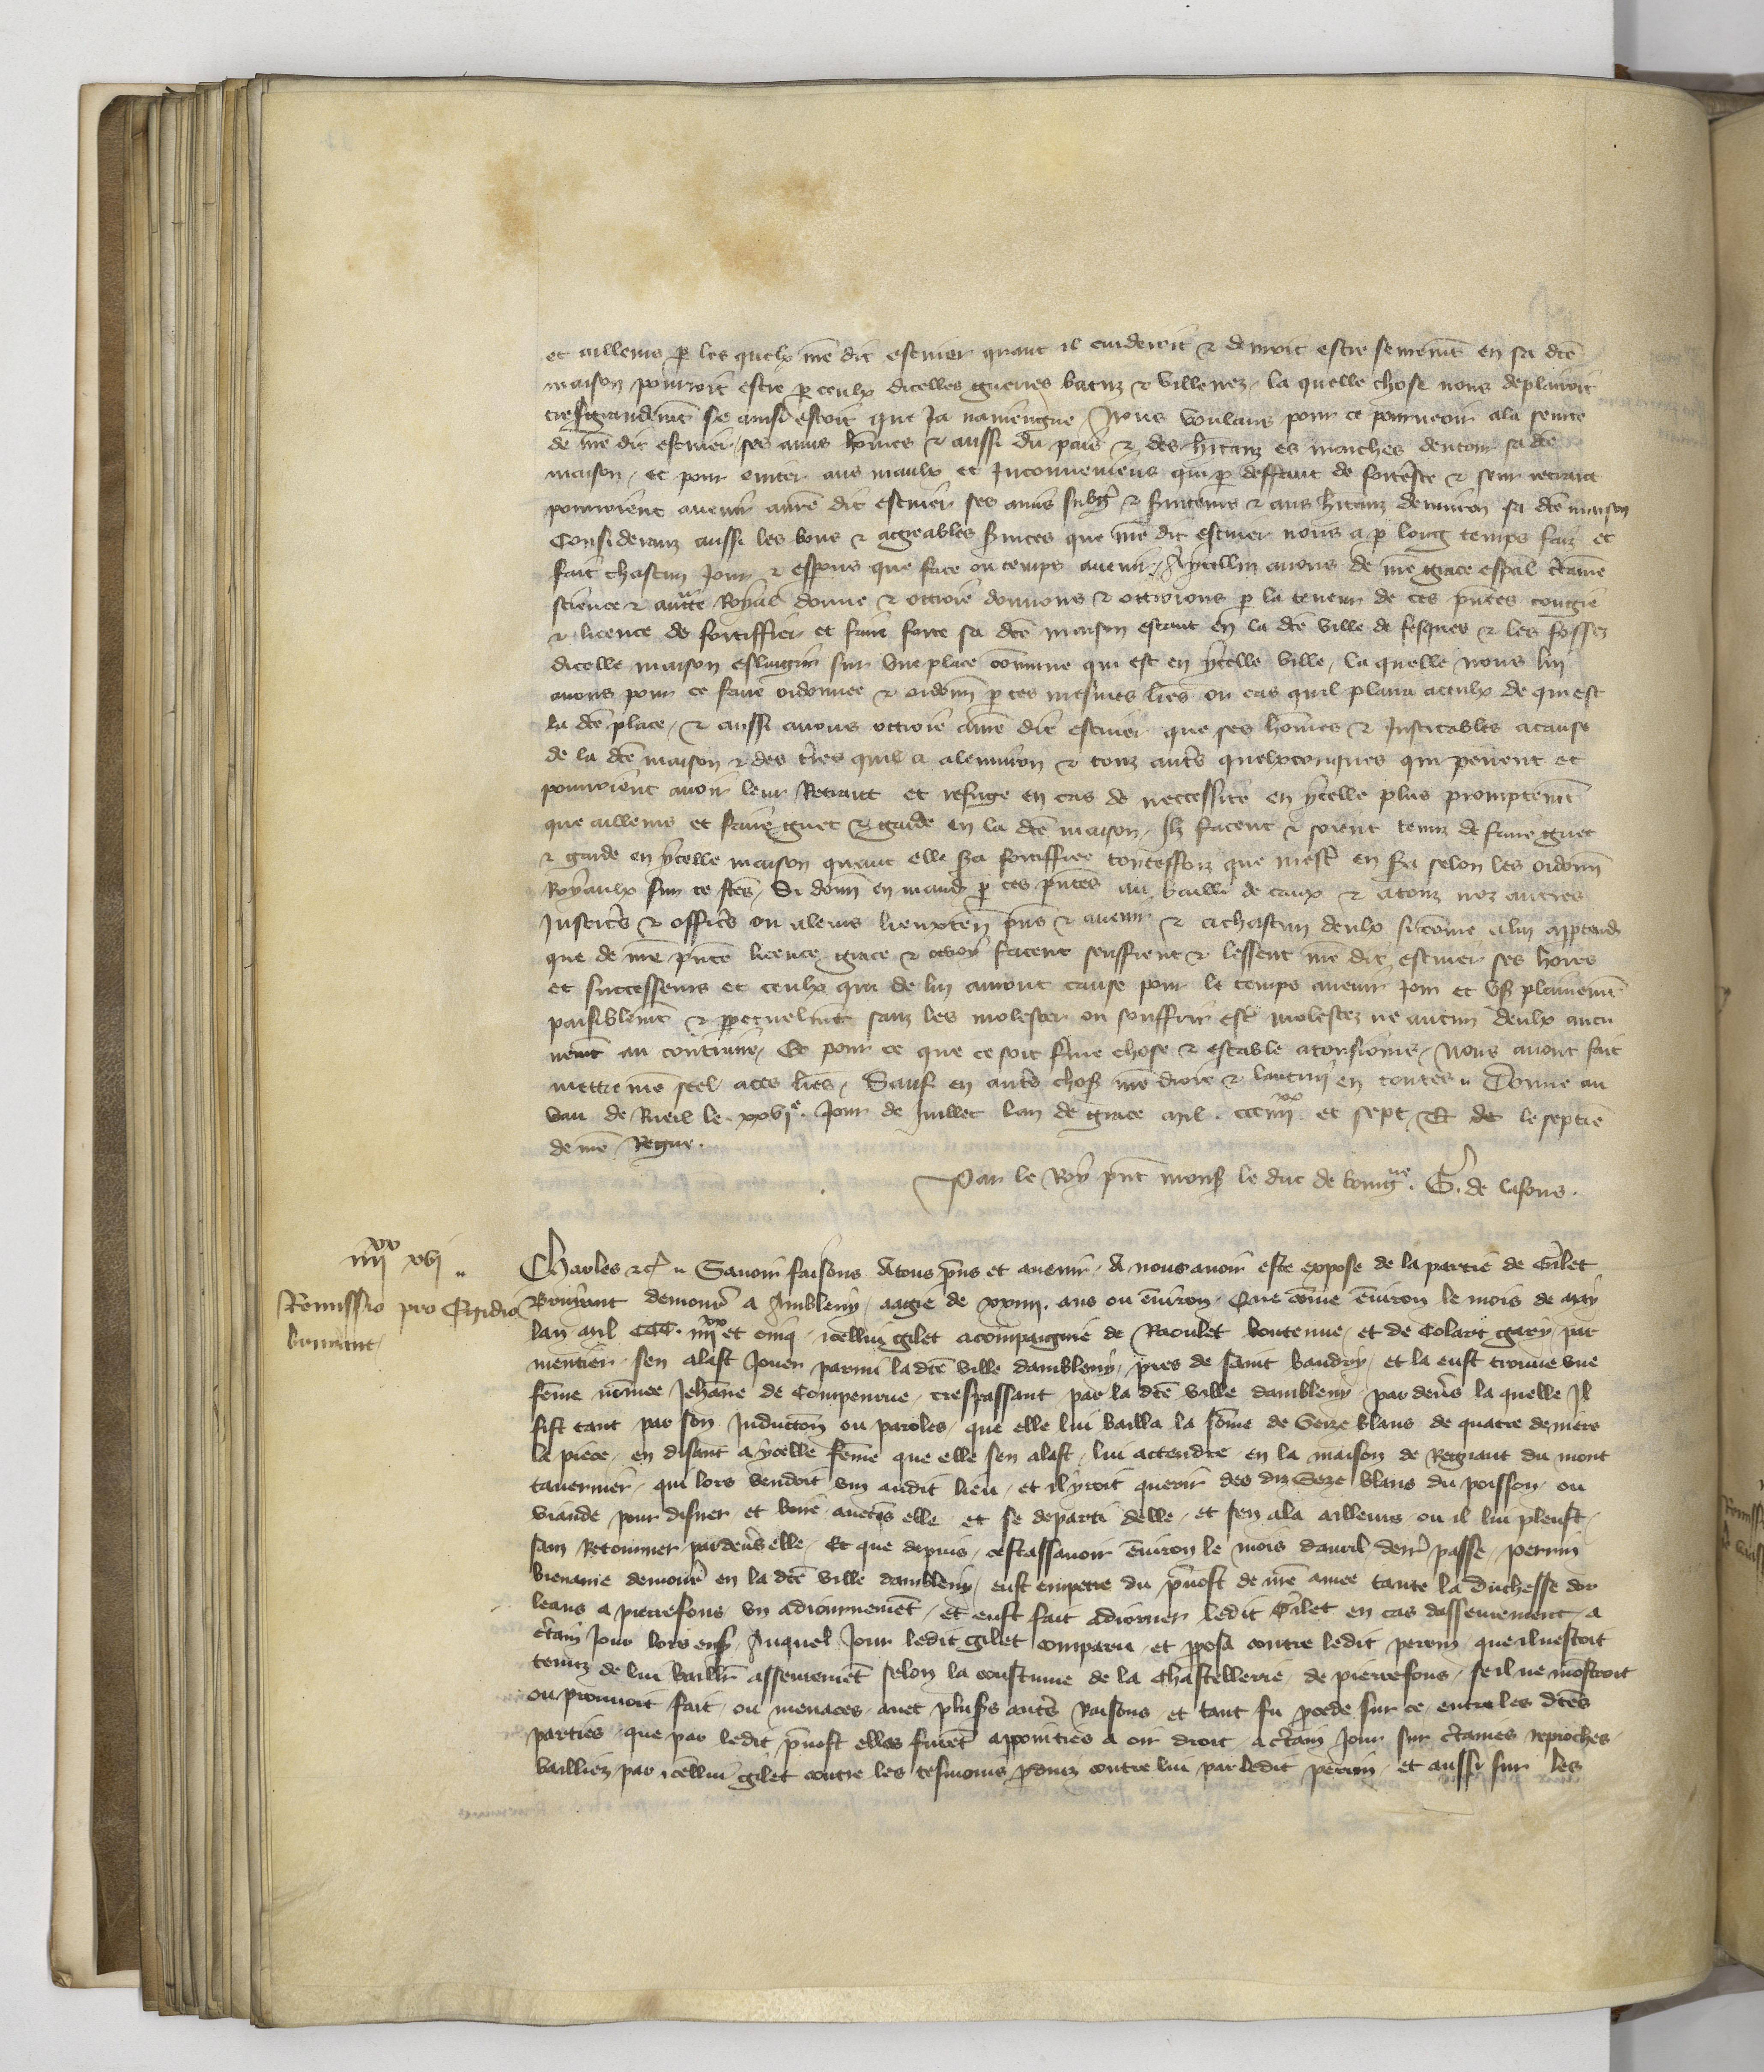 et ailleurs p les quelx nre dit escuier quant il cuideroit & devroit estre seurement en sa dce
maison pourroit estre p ceulx dicelles guerres batuz & villenez la quelle chose nous deplairoit
tresgrandemt se ainsi estoit que Ja naviengne Nous voulans pour ce pourveoir ala seurte
de nre dit escuier ses amis homes & aussi du pais & des hitanz es marches dentour sa dce
maison et pour eviter aus maulx et Inconveniens qui p deffaut de forteresce & seur retrait
pourroient avenir a nre dit escuier ses amis subgz & serviteurs & aus hitanz denviron sa dce maison
Consideranz aussi les bons & agreables services que nre dit escuier nous a p long temps faiz et
fait chascun Jour & esperons que face ou temps avenir A ycellui avons de nre grace espal ctaine
science & aucte Royal donne & ottroie donnons & ottroions p la teneur de ces pntes congie
& licence de fortiffier et faire forte sa dce maison estant en la dce ville de fesques & les fossez
dicelle maison eslargir sur une place comune qui est en ycelle ville la quelle nous lui
avons pour ce faire ordonnee & ordonn p ces mesmes lres ou cas quil plaira a ceulx de qui est
la dce place & aussi avons ottroie a nre dit escuier que ses homes & Justicables acause
de la dce maison & des tres quil a alenviron & touz autrs quelxconques qui peuent et
pourroient avoir leur Retrait et refuge en cas de neccessite en ycelle plus promptemt
que ailleurs et faire guet & garde en la dce maison Ilz facent & soient tenuz de faire guet
& garde en ycelle maison quant elle sera fortiffiee toutesfoiz que mest en sera selon les ordonn
Royaulx sur ce fces Si donn en mand p ces pntes au bailli de caux & atouz noz autres
Justicrs & officrs ou aleurs lieuxten pns & avenir & achascun deulx sicome alui apptend
que de nre pnte licence grace & ottroy facent seuffrent & lessent nre dit escuier ses hoirs
et successeurs et ceulx qui de lui auront cause pour le temps avenir Joir et user plainemt
paisiblemt & ppetuelmt sanz les molester ou souffrir estre molestez ne aucun deulx aucu
nemt au contraire Et pour ce que ce soit ferme chose & estable atousiours Nous avons fait
mettre nre seel aces lres Sauf en autrs choses nre droit & lautrui en toutes Donne au
vau de Rueil le xxvie Jour de Juillet lan de grace mil ccciiiixx et sept Et de le septie
de nre Regne
Par le Roy pnt mons le duc de bourgne. G. de lafons.
iiiixx xvi
Charles &c Savoir faisons Atous pns et avenir A nous avoir este expose de la partie de Gilet
Remissio pro Egidio
brunant
Brunant demourr a Ambleny aagie de xxiiii ans ou environ Que come environ le mois de may
lan mil CCC iiiixx et cinq icellui gilet acompaignie de Raoulet boutevue et de Colart gary par
mentier sen alast Jouer parmi ladce ville dambleny pres de saint bandry et la eust trouve une
feme nomee Jehane de Compenrue trespassant par la dce ville dambleny par devers la quelle Il
fist tant par son Induction ou paroles que elle lui bailla la some de Seize blans de quatre deniers
la piece en disant a ycelle feme que elle sen alast lui attendre en la maison de Regnaut du mont
tavernier qui lors vendoit vin audit lieu et il yroit querir des diz Seze blans du poisson ou
viande pour disner et boire avecqs elle et se departi delle et sen ala ailleurs ou il lui pleust
sans Retourner pardevers elle Et que depuis cestassavoir environ le mois davril derr passe perrin
bienarme demourr en la dce ville dambleny eust empetre du prevost de nre amee tante la duchesse dor
leans a pierrefons un adiournement et eust fait adiorner ledit Gilet en cas dasseurement a
ctain Jour lors ens Auquel Jour ledit gilet comparu et pposa contre ledit perrin que il nestoit
tenuz de lui baillr asseurement selon la coustume de la Chastellerie de pierrefons se il ne mostroit
ou prouvoit fait ou menaces avec plusrs autrs Raisons et tant fu pcede sur ce entre les dces
parties que par ledit pvost elles furet appointies a oir droit a ctain Jour sur ctaines reproches
bailliez par icellui gilet contre les tesmoins pduiz contre lui par ledit perrin et aussi sur les